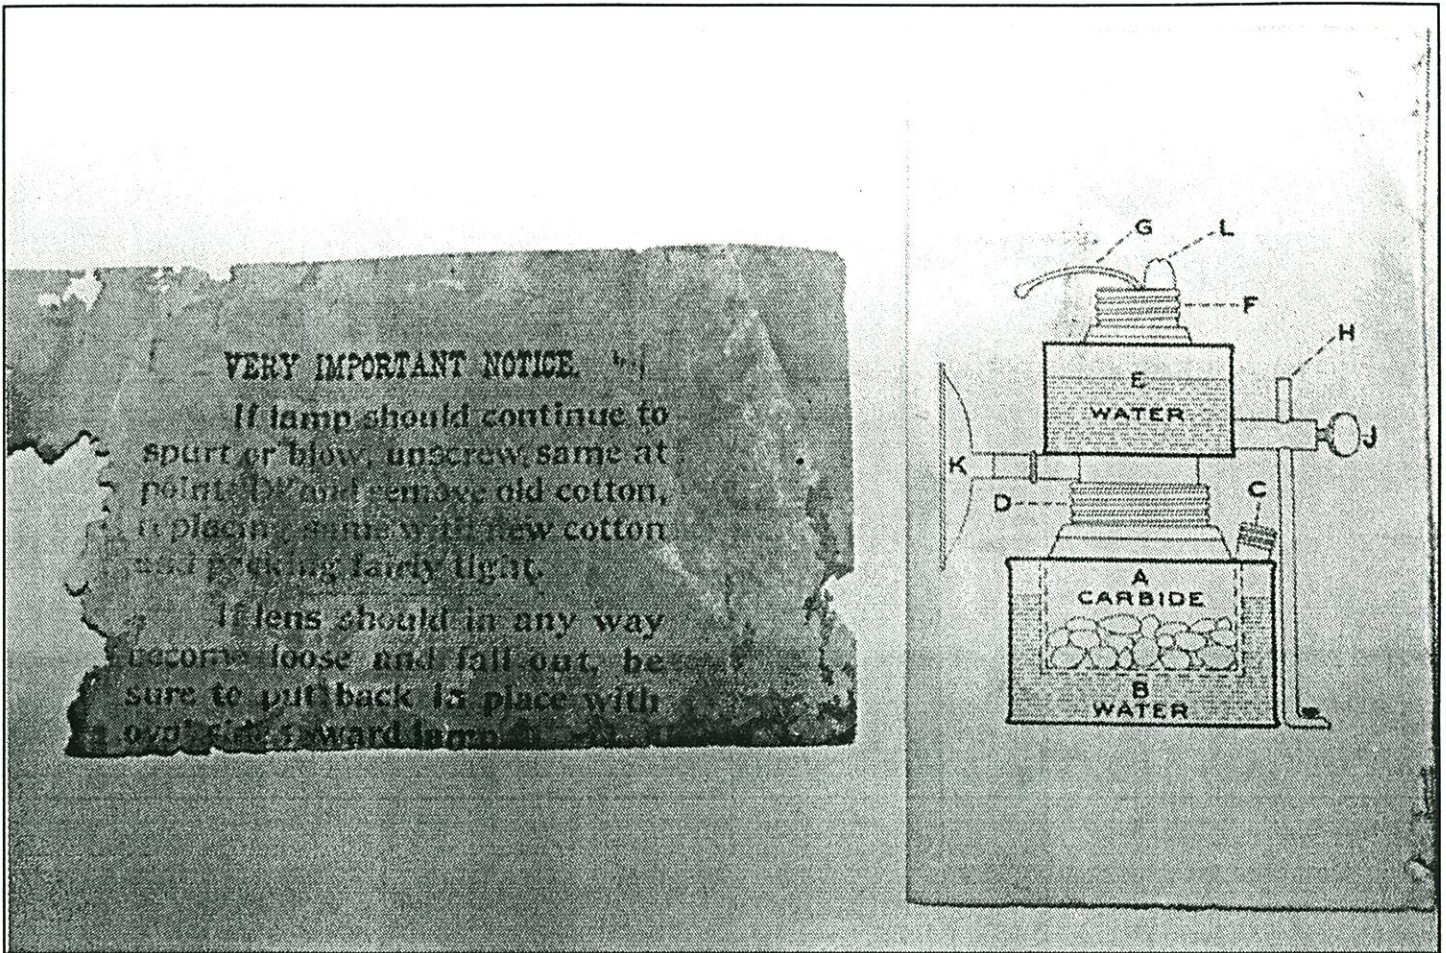 VERY IMPORTANT NOTICE.
If lamp should continue to
spurt or blow, unscrew same at
point "D" and remove old cotton,
replacing same with new cotton
and packing fairly tight.
If lens should in any way
become loose and fall out, be
sure to put back in place with
side toward lamp
G
L
F
H
E
WATER
J
K
C
D
A
CARBIDE
B
WATER